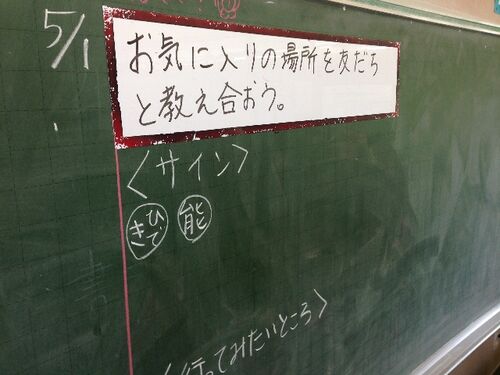 5/1
お気に入りの場所を友だち
と教え合おう。
〈サイン〉
きひで 能
〈行ってみたいところ〉